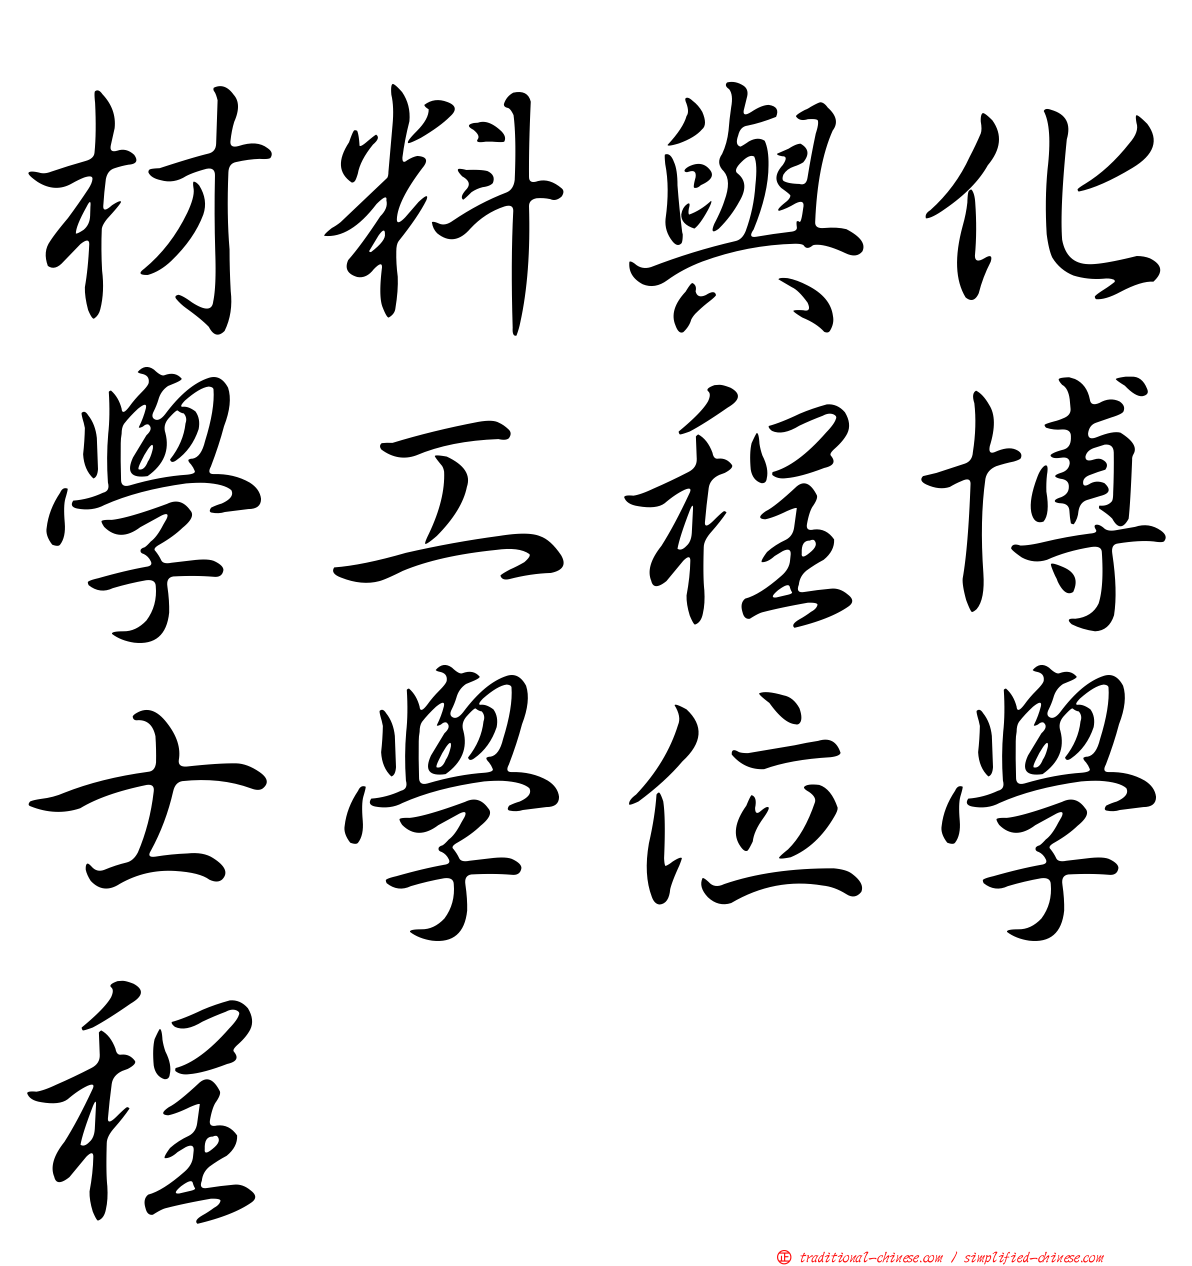 材料與化
學工程博
士學位學
程
正 traditional-chinese.com / simplified-chinese.com